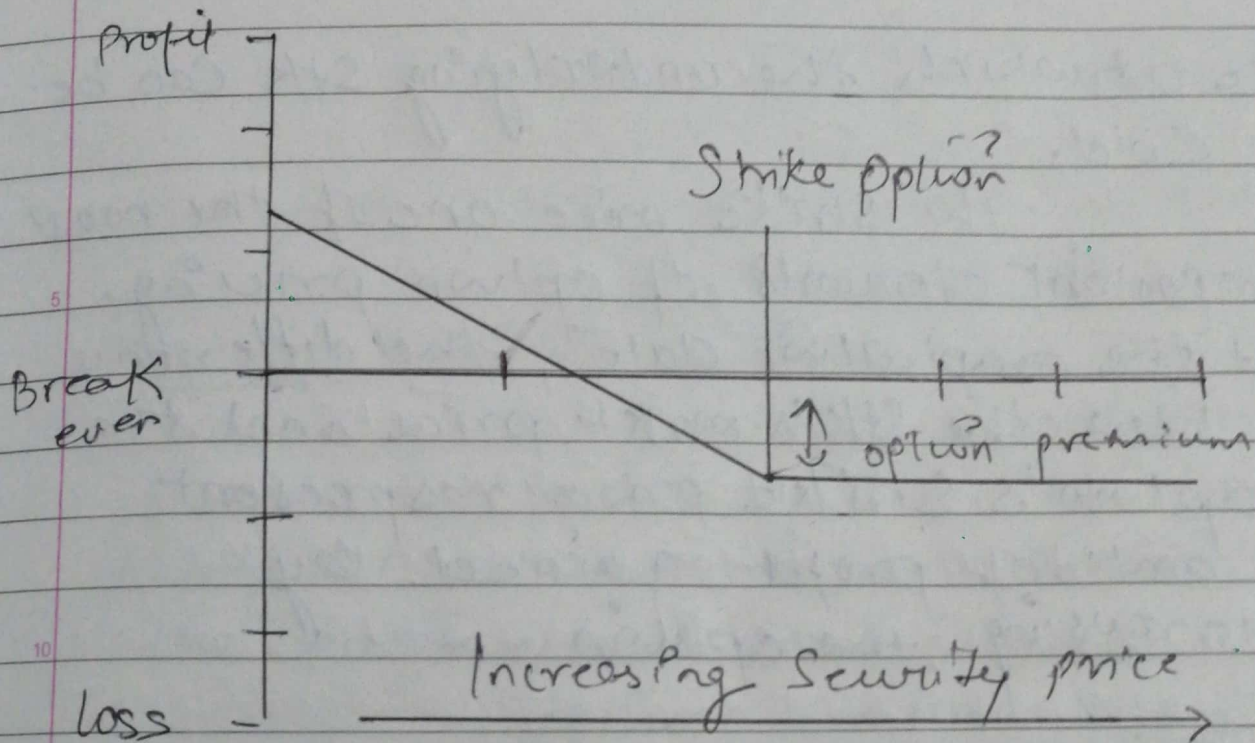 Profit
Strike option
5
Break
even
option premium
10
Increasing Security price
Loss